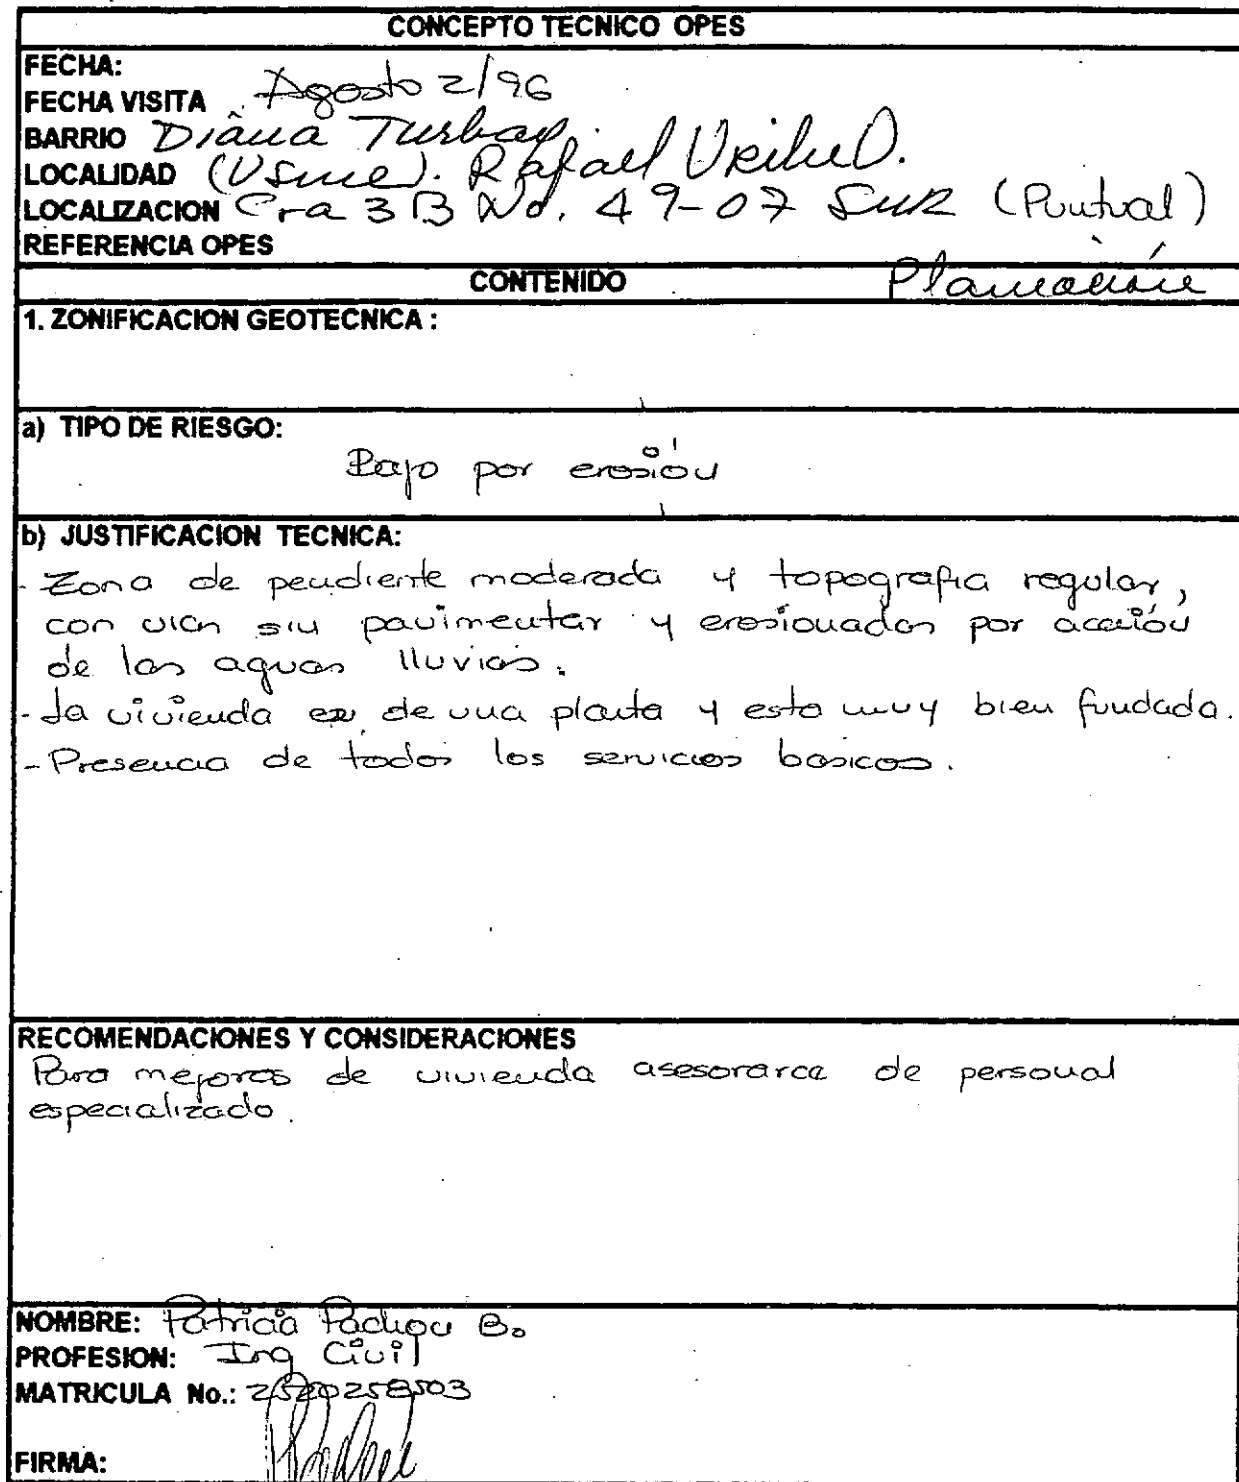 CONCEPTO TECNICO OPES
FECHA:
FECHA VISITA Agosto 2/96
BARRIO Diana Turbay
LOCALIDAD (Usme). Rafael Uribe U.
LOCALIZACION Cra 3B No. 49-07 Sur (Puntual)
REFERENCIA OPES
CONTENIDO Planeación
1. ZONIFICACION GEOTECNICA :
a) TIPO DE RIESGO:
Bajo por erosión
b) JUSTIFICACION TECNICA:
- Zona de pendiente moderada y topografia regular,
con vias sin pavimentar y erosionadas por acción
de las aguas lluvias.
- La vivienda es de una planta y esta muy bien fundada.
- Presencia de todos los servicios basicos.
RECOMENDACIONES Y CONSIDERACIONES
Para mejoras de vivienda asesorarce de personal
especializado.
NOMBRE: Patricia Pachon B.
PROFESION: Ing Civil
MATRICULA No.: 2520258503
FIRMA: